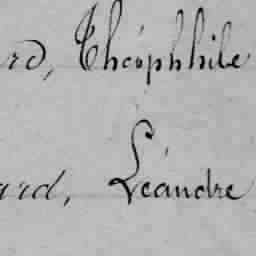 rd, Théophhile
ard, Léandre